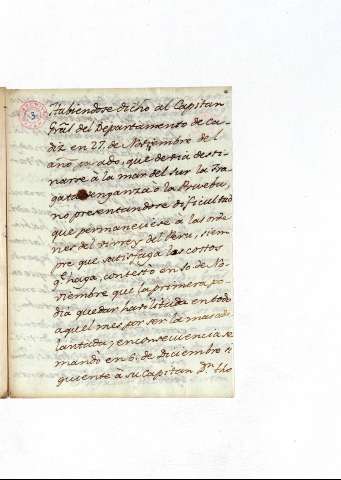 Habiendose dicho al Capitan
Gral. del Departamento de Ca-
diz en 27 de Noviembre del
año pasado, que debia desti-
narse à la mar del sur la Fra-
gata Venganza o la Prueba,
no presentandose dificultad
que permaneciese à las orde-
nes del Virrey del Peru, siem-
pre que satisfaga los costos
qe. haga, contesto en 10 de No-
viembre que la primera, po-
dia quedar habilitada en todo
aquel mes por ser la mas ade
lantada; en consecuencia se
mando en 6. de Diciembre si
guiente à su Capitan Dn.